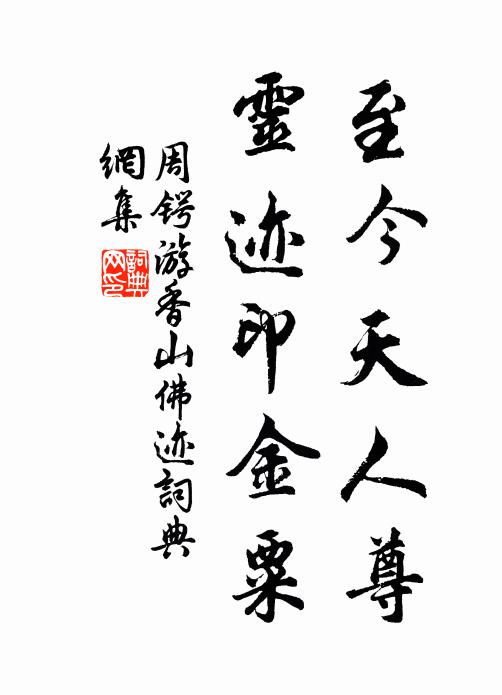 至今天人尊
靈迹印金粟
周鍔游香山佛迹詞典
網集
詞典
网印